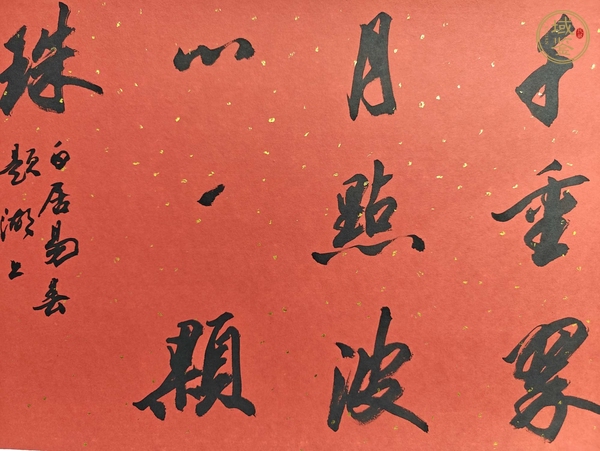 千重翠
月點波
心一顆
珠
白居易春
題湖上